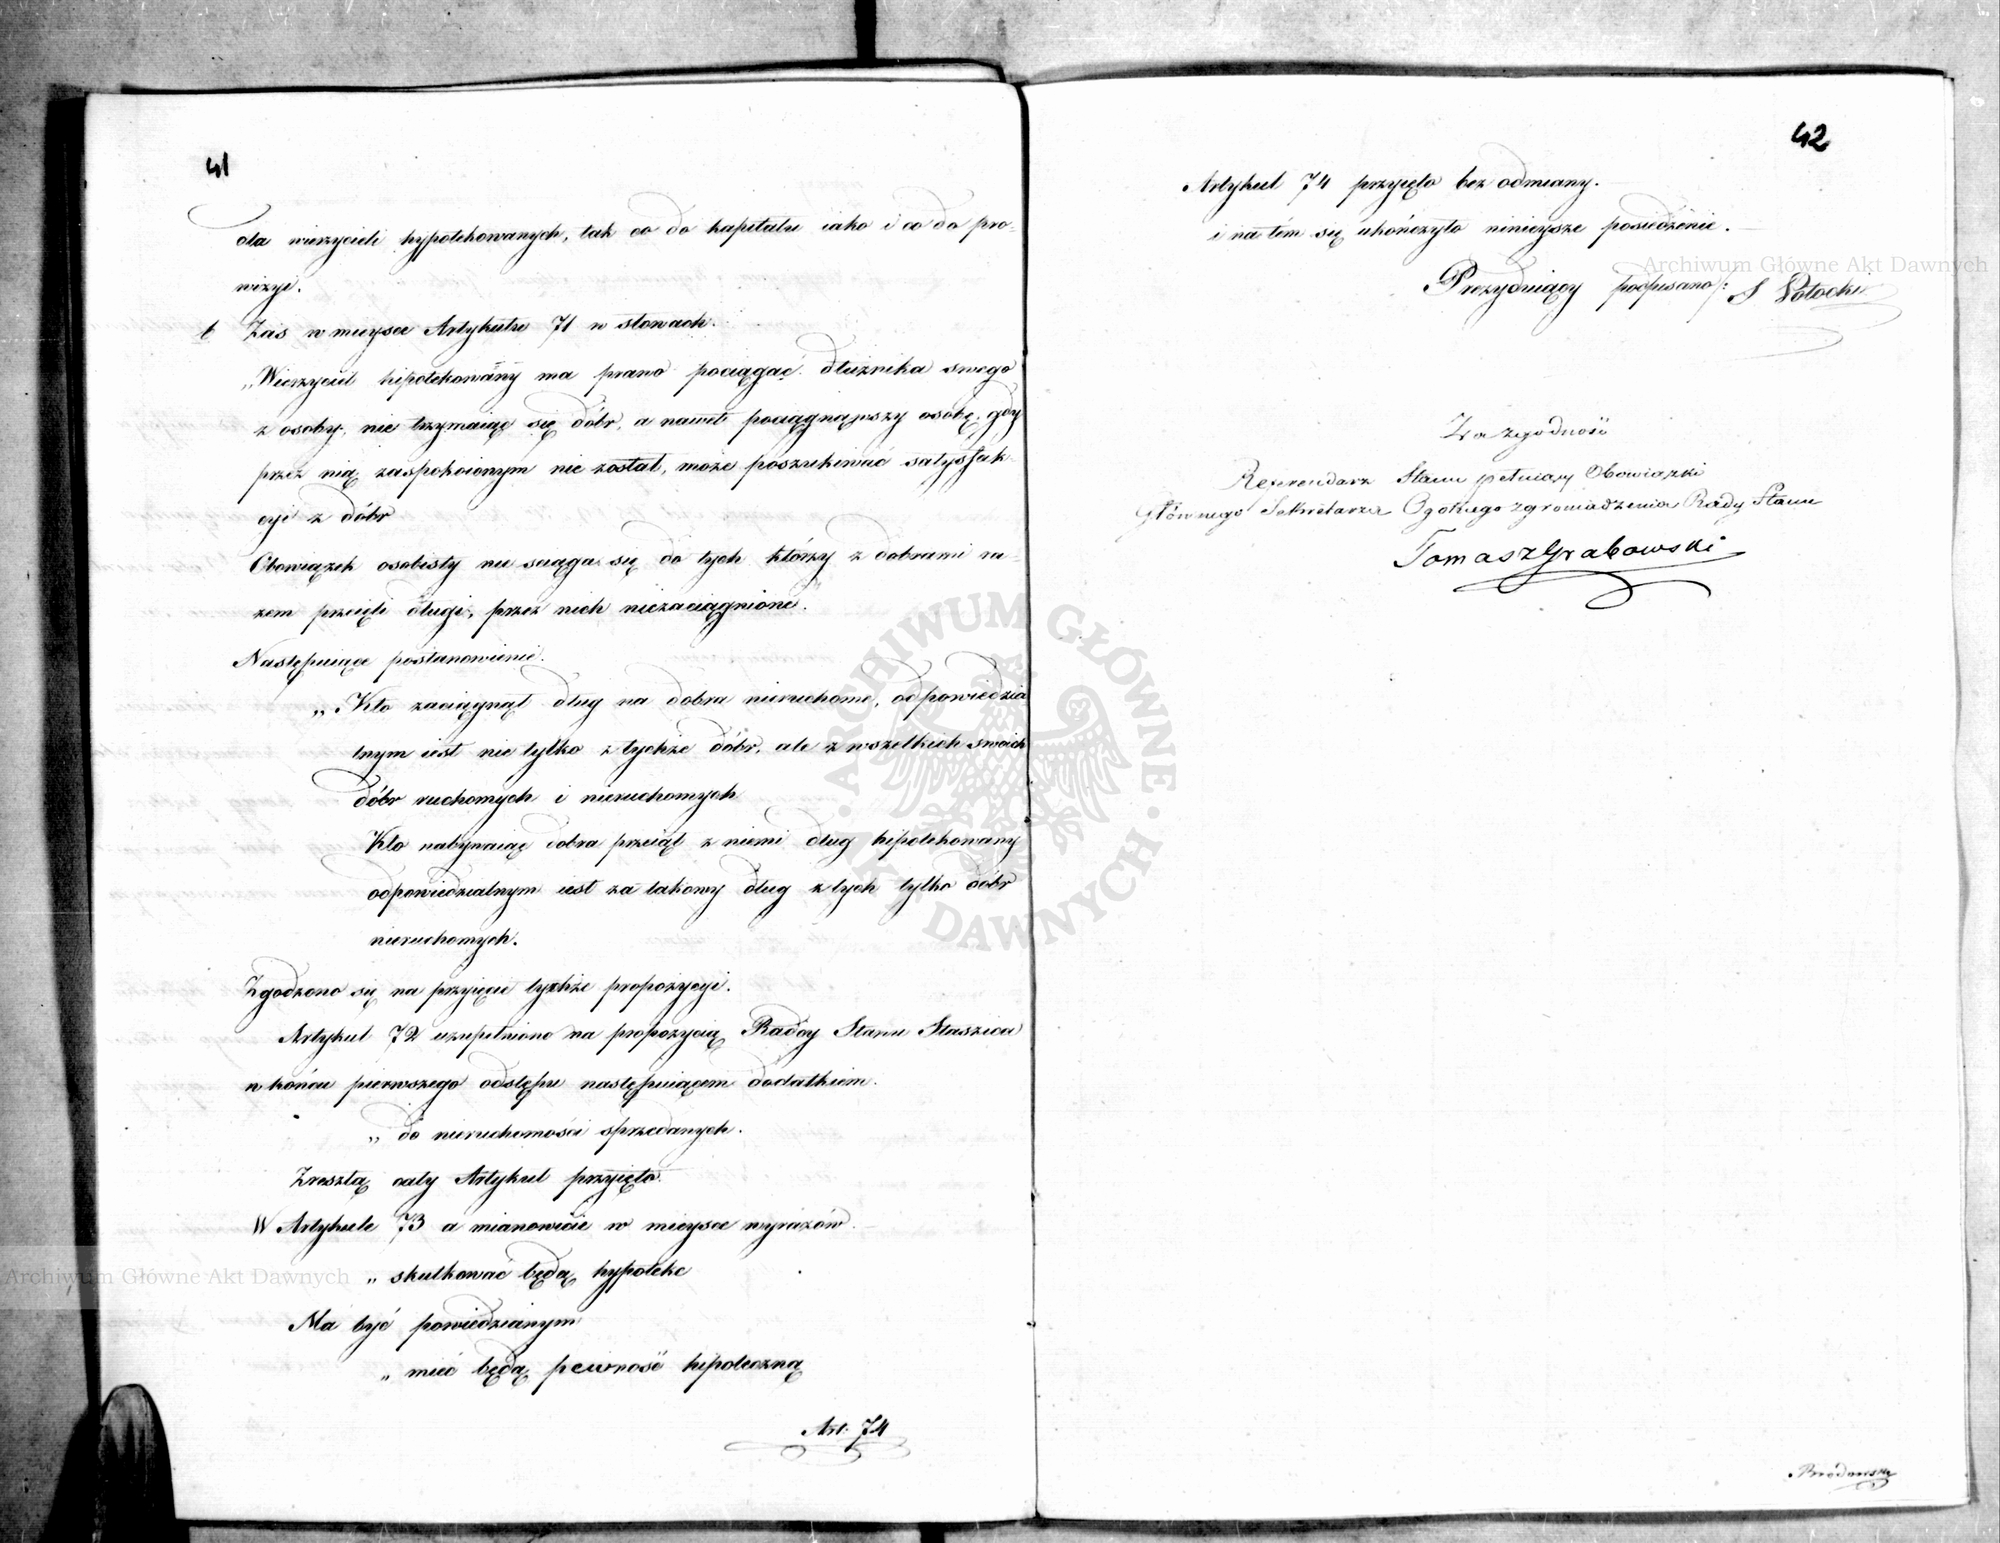 41
dla wierzycieli hypotekowanych, tak co do kapitału iako i co do pro-
wizyi.
b Zaś w mieysce Artykułu 71 w słowach.
„Wierzyciel hipotekowany ma prawo pociągać dłużnika swego
z osoby, nie trzymaiąc się dóbr, a nawet pociągnąwszy osobę, gdy
przez nią zaspokoionym nie został, może poszukiwać satysfak-
cyi z dóbr
Obowiązek osobisty nie sciąga się do tych którzy z dobrami ra-
zem przeięli długi, przez nich niezaciągnione.
Następuiące postanowienie.
„Kto zaciągnął dług na dobra nieruchome, odpowiedzia
lnym iest nie tylko z tychże dóbr, ale z wszelkich swoich
dóbr ruchomych i nieruchomych
Kto nabywaiąc dobra przeiął z niemi dług hipotekowany
odpowiedzialnym iest za takowy dług z tych tylko dóbr
nieruchomych.
Zgodzono się na przyięcie tychże propozycyi.
Artykuł 72 uzupełniono na propozycią Radcy Stanu Staszica
w końcu pierwszego odstępu następuiącem dodatkiem.
„do nieruchomości sprzedanych.
Zresztą cały Artykuł przyięto.
W Artykule 73 a mianowicie w mieysce wyrazów
„skutkować będą hypotekę
Ma być powiedzianym
„mieć będą pewność hipoteczną
Art. 74
42
Artykuł 74 przyięto bez odmiany.
i na tém się ukończyło ninieysze posiedzenie.
Prezyduiący podpisano/: S Potocki
Za zgodność
Referendarz Stanu pełniący Obowiązki
Głównego Sekretarza Ogólnego zgromadzenia Rady Stanu
Tomasz Grabowski
Archiwum Główne Akt Dawnych
Archiwum Główne Akt Dawnych
ARCHIWUM GŁÓWNE AKT DAWNYCH